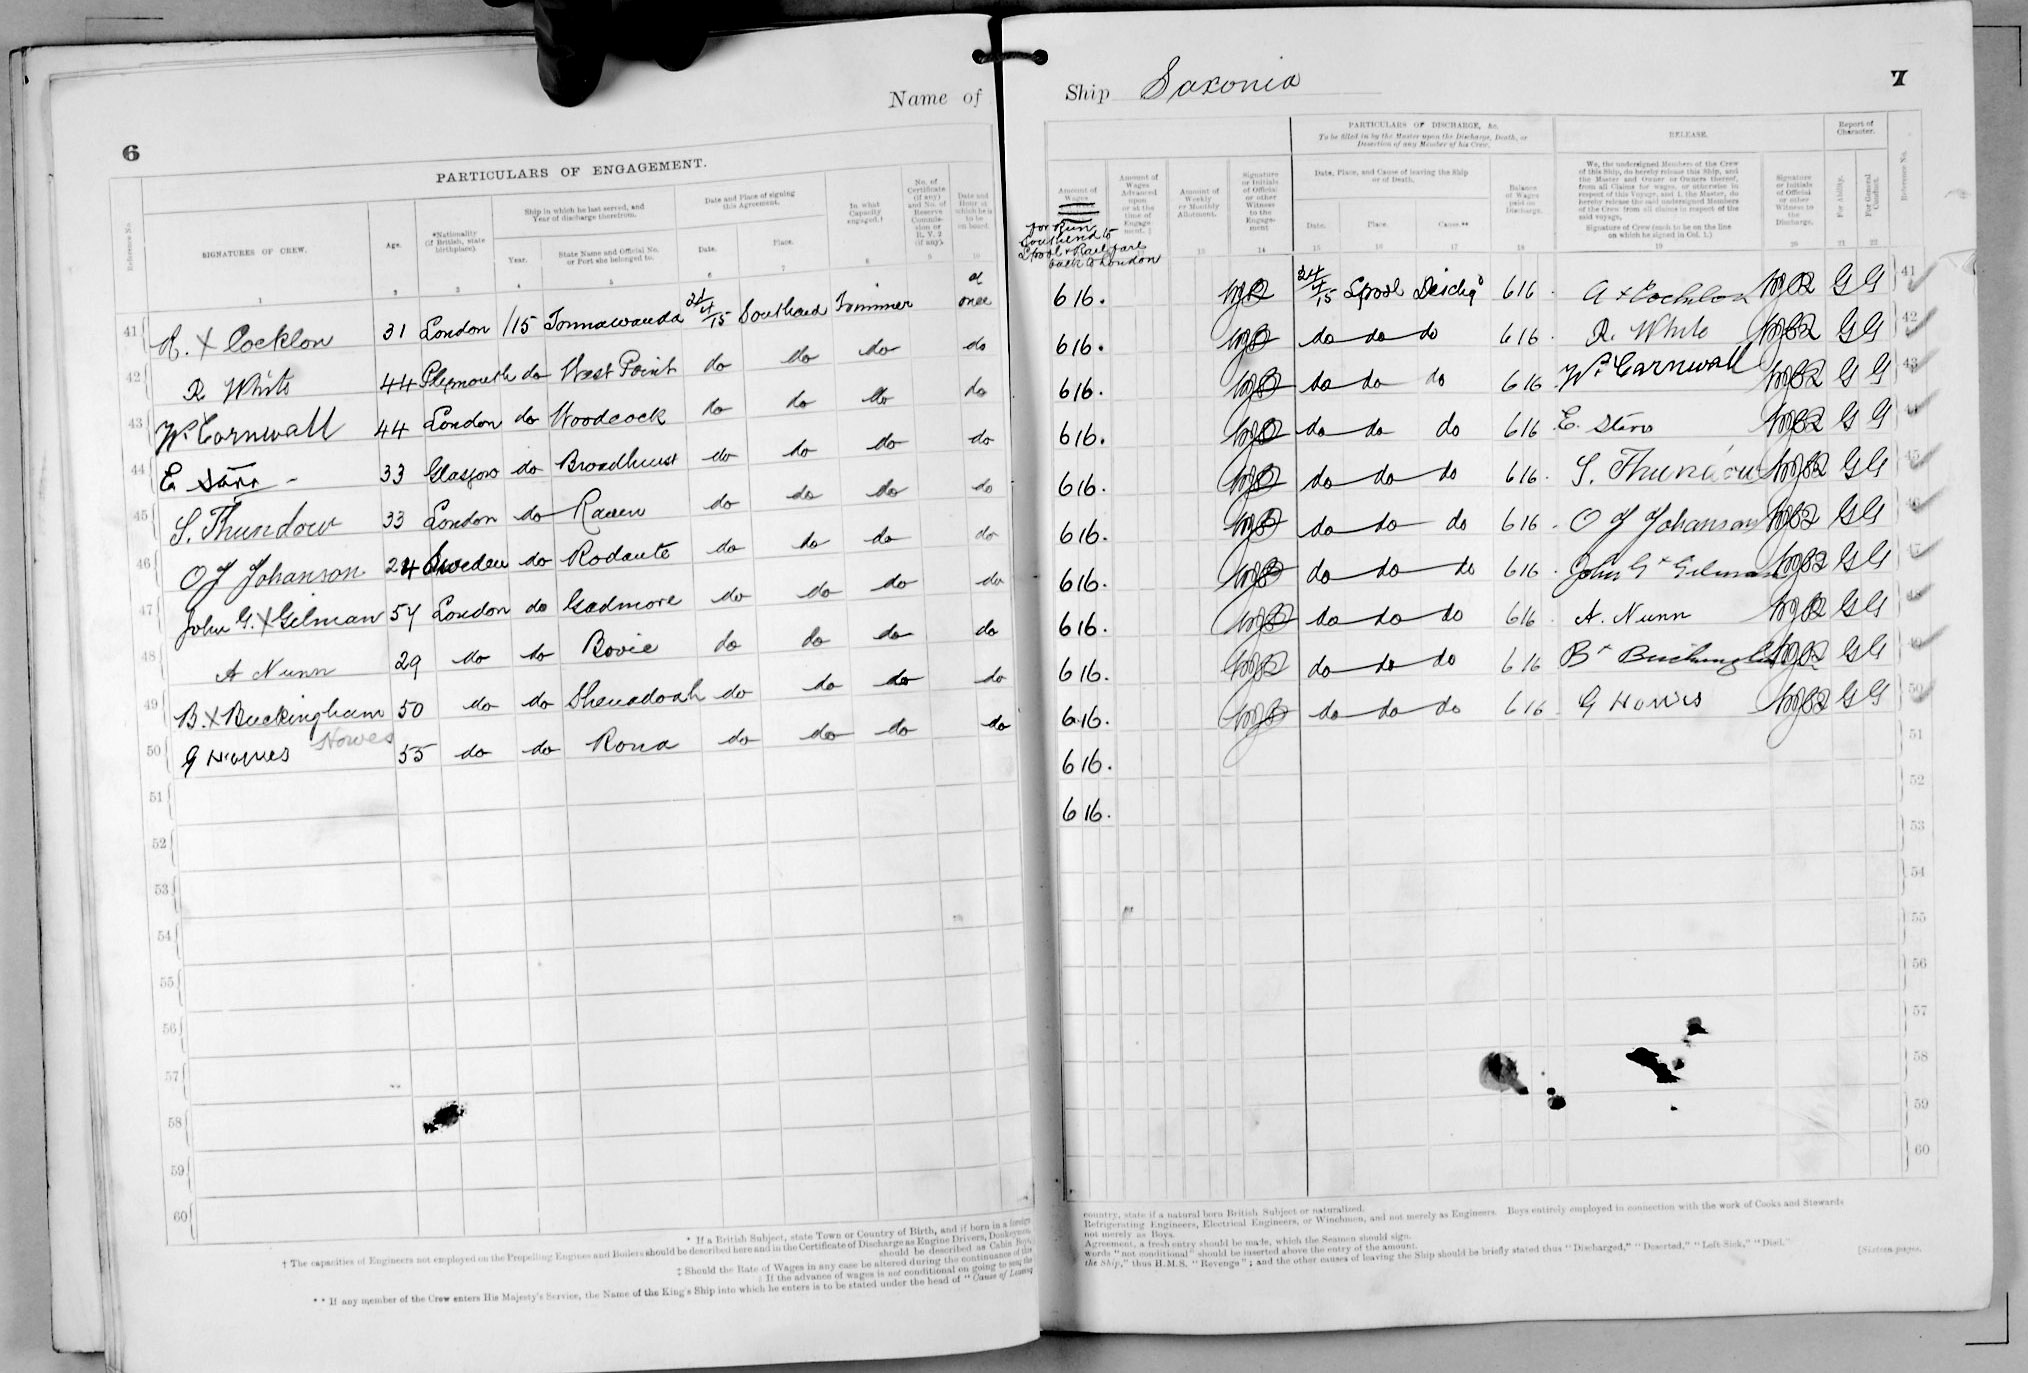 Name of
Ship Saxonia
6
7
PARTICULARS OF ENGAGEMENT.
Reference No.
SIGNATURES OF CREW.
Age.
*Nationality (If British, state birthplace).
Ship in which he last served, and Year of discharge therefrom.
Year.
State Name and Official No. or Port she belonged to.
Date and Place of signing this Agreement.
Date.
Place.
In what Capacity engaged.†
No. of Certificate (if any) and No. of Reserve Commission or R. V. 2 (if any).
Date and Hour at which he is to be on board.
1 2 3 4 5 6 7 8 9 10
41 R. X Cocklon 31 London /15 Tonnawanda 24/4/15 Southend Trimmer at once
42 R White 44 Plymouth do West Point do do do do
43 Wm Cornwall 44 London do Woodcock do do do do
44 E Starr 33 Glasgow do Broadhurst do do do do
45 S. Thundow 33 London do Raven do do do do
46 O J Johanson 24 Sweden do Rodante do do do do
47 John G. X Gilman 54 London do Gadmore do do do do
48 A Nunn 29 do do Bovic do do do do
49 B. X Buckingham 50 do do Shenadoah do do do do
50 G Howes Howes 55 do do Rona do do do do
51
52
53
54
55
56
57
58
59
60
* If a British Subject, state Town or Country of Birth, and if born in a foreign
† The capacities of Engineers not employed on the Propelling Engines and Boilers should be described here and in the Certificate of Discharge as Engine Drivers, Donkeymen,
should be described as Cabin Boys,
‡ Should the Rate of Wages in any case be altered during the continuance of this
If the advance of wages is not conditional on going to sea, the
** If any member of the Crew enters His Majesty's Service, the Name of the King's Ship into which he enters is to be stated under the head of "Cause of Leaving
PARTICULARS OF DISCHARGE, &c.
To be filled in by the Master upon the Discharge, Death, or Desertion of any Member of his Crew.
RELEASE.
Report of Character.
Amount of Wages
for Run Southend to L'pool & Rail fare back to London
Amount of Wages Advanced upon or at the time of Engagement.
Amount of Weekly or Monthly Allotment.
Signature or Initials of Official or other Witness to the Engagement
Date, Place, and Cause of leaving the Ship or of Death.
Date.
Place.
Cause.**
Balance of Wages paid on Discharge.
We, the undersigned Members of the Crew of this Ship, do hereby release this Ship, and the Master and Owner or Owners thereof, from all Claims for wages, or otherwise in respect of this Voyage, and I, the Master, do hereby release the said undersigned Members of the Crew from all claims in respect of the said voyage.
Signature of Crew (each to be on the line on which he signed in Col. 1.)
Signature or Initials of Official or other Witness to the Discharge.
For Ability.
For General Conduct.
Reference No.
13 14 15 16 17 18 19 20 21 22
616. 24/4/15 L'pool Dischgd 616 X Cocklon G G 41
616. do do do 616 R. White G G 42
616. do do do 616 Wm Cornwall G G 43
616. do do do 616 E. Starr G G 44
616. do do do 616 S. Thundow G G 45
616. do do do 616 O J Johanson G G 46
616. do do do 616 John G X Gilman G G 47
616. do do do 616 A. Nunn G G 48
616. do do do 616 B X Buckingham G G 49
616. do do do 616 G Howes G G 50
616. 51
616. 52
53
54
55
56
57
58
59
60
country, state if a natural born British Subject or naturalized.
Refrigerating Engineers, Electrical Engineers, or Winchmen, and not merely as Engineers. Boys entirely employed in connection with the work of Cooks and Stewards
not merely as Boys.
Agreement, a fresh entry should be made, which the Seamen should sign.
words "not conditional" should be inserted above the entry of the amount.
the Ship," thus H.M.S. "Revenge"; and the other causes of leaving the Ship should be briefly stated thus "Discharged," "Deserted," "Left Sick," "Died."
[Sixteen pages.